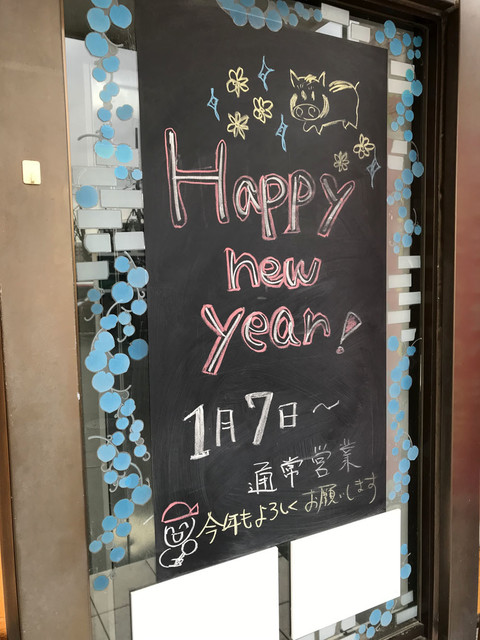 Happy
new
year!
1月7日～
通常営業
今年もよろしくお願いします